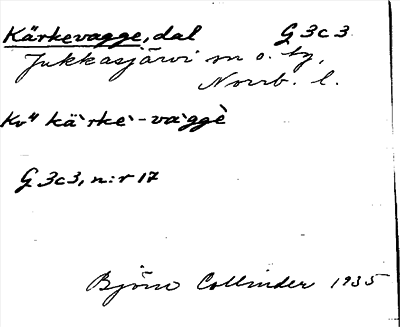 Kärkevagge, dal G 3c 3
Jukkasjärvi sn o. tg,
Norrb. l.
Kv" kä`rke`-va`ggè
G 3c3, n:r 17
Björn Collinder 1935